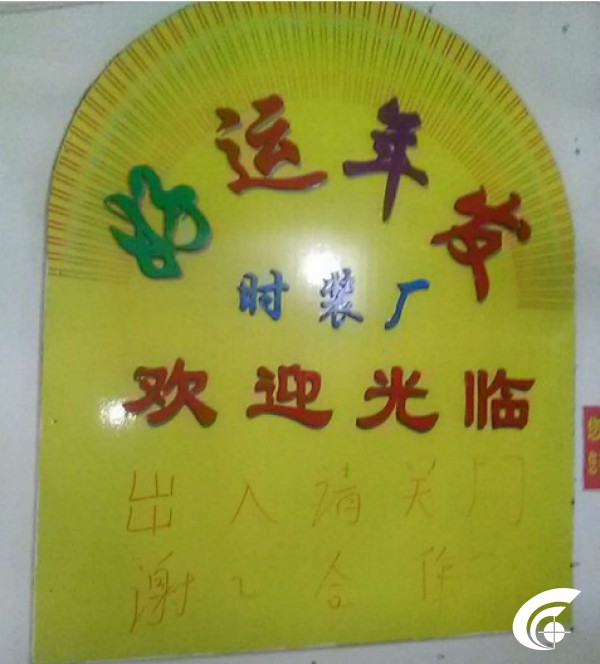 好运年
时装厂
欢迎光临
出入请关门
谢々合作
您